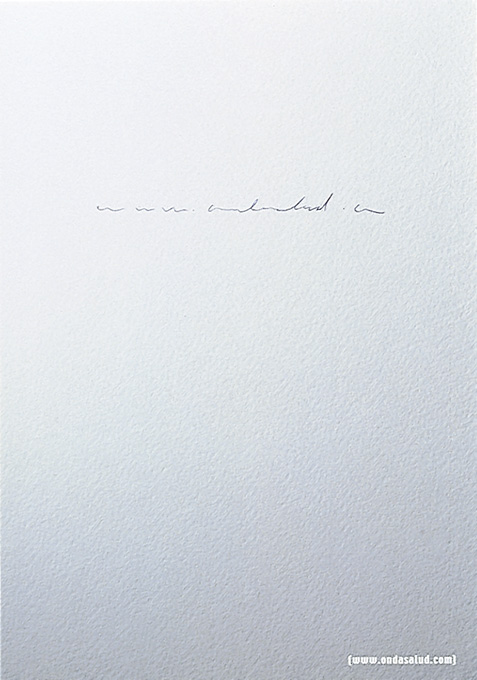 www.ondasalud.com
(www.ondasalud.com)